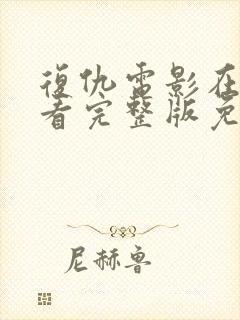 復仇電影在
看完整版免
尼赫鲁